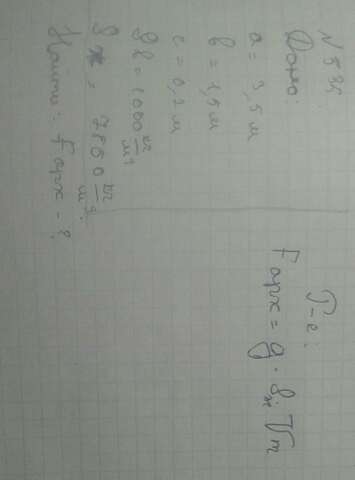 N 535
Дано:
a = 3,5 м
b = 1,5 м
c = 0,2 м
ρв = 1000 кг/м³
ρж = 7850 кг/м³
Найти: Fарх - ?
Р-е:
Fарх = g · ρж Vт